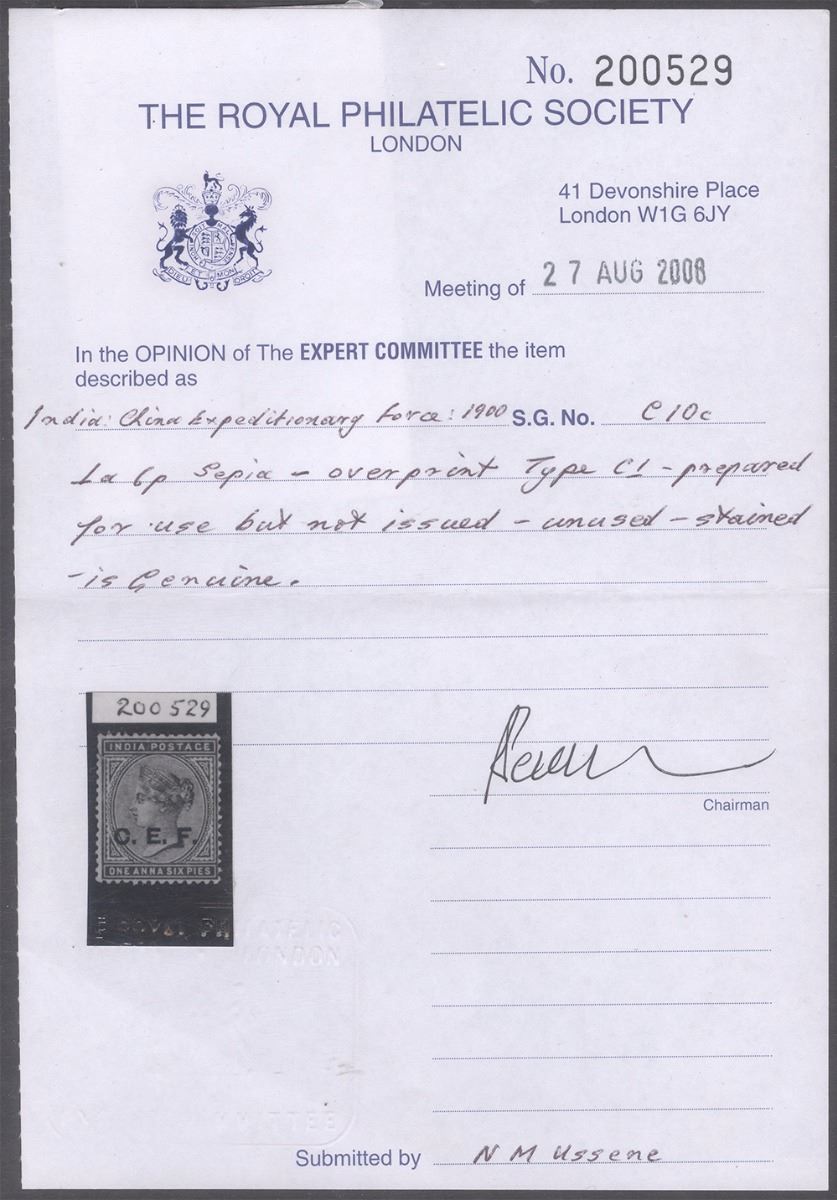 No. 200529
THE ROYAL PHILATELIC SOCIETY
LONDON
41 Devonshire Place
London W1G 6JY
Meeting of 27 AUG 2008
In the OPINION of The EXPERT COMMITTEE the item
described as
India: China Expeditionary Force: 1900 S.G. No. C10c
1a 6p Sepia - overprint Type C1 - prepared
for use but not issued - unused - stained
- is Genuine.
200529
INDIA POSTAGE
C. E. F.
ONE ANNA SIX PIES
Chairman
LONDON
Submitted by N M Ussene